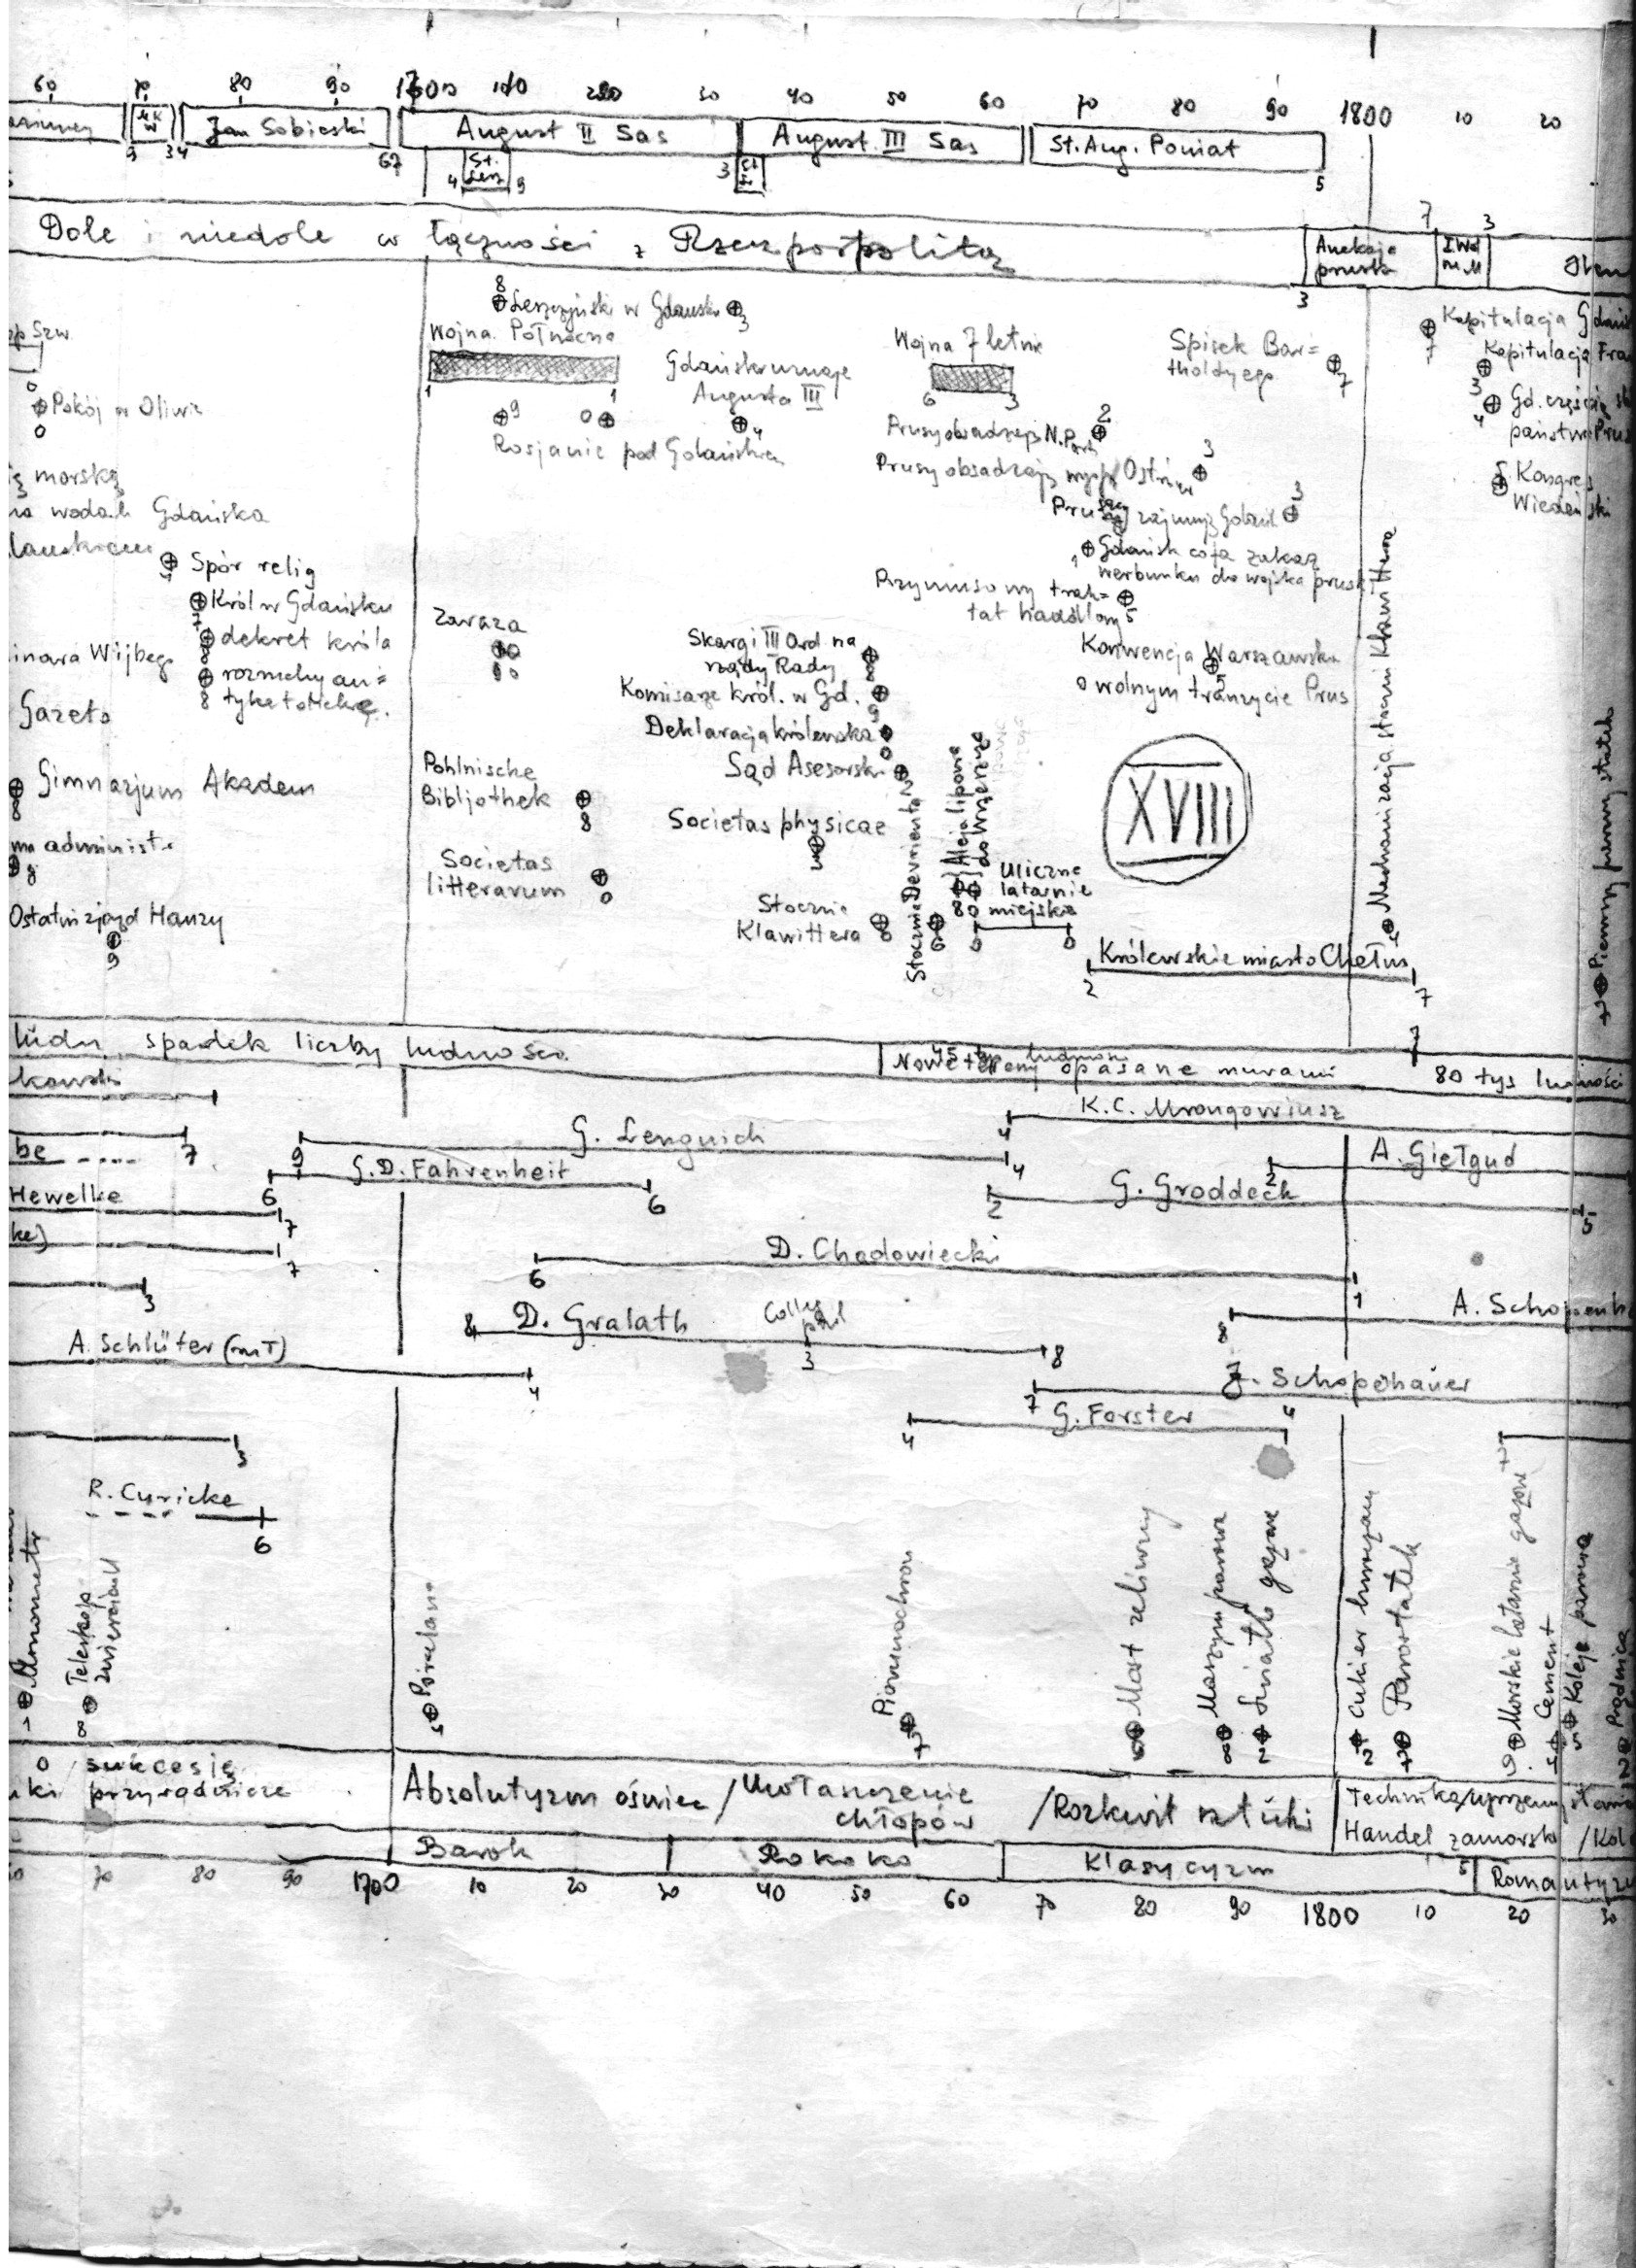 60 70 80 90 1700 10 20 30 40 50 60 70 80 90 1800 10 20
MK W Jan Sobieski August II Sas August III Sas St. Aug. Poniat
9 34 67 4 St. Lesz 9 3 St. L. 5
Dole i niedole w łączności z Rzeczpospolitą
Aneksja prusk
3
7 3
8
Leszczyński w Gdańsku
3
Wojna Północna
1 1
Gdańsk uznaje
Augusta III
4
9 0
Rosjanie pod Gdańskiem
Wojna 7 letnia
6 3
Spisek Bar=
tholdyego
7
Kapitulacja Gdań
7
Kapitulacja Fra
3
Gd. częścią
4
państwa Prus
Kongres
5
Wiedeński
Prusy obsadzają N. Port
2
Prusy obsadzają wyspę Ostrów
3
Prusacy zajmują Gdańsk
3
Gdańsk cofa zakaz
1
werbunku do wojska prusk
Przymusowy trak=
tat handlowy
5
Konwencja Warszawska
5
o wolnym tranzycie Prus
Szw
0
Pokój w Oliwie
0
morską
na wodach Gdańska
Spór relig
Król w Gdańsku
7
dekret króla
8
rozruchy an=
8 tykatolickie.
Gazeta
Gimnazjum Akadem
8
administr
8
Ostatni zjazd Hanzy
9
Zaraza
Pohlnische
Bibljothek
8
Societas
litterarum
0
Skargi III Ord na
rządy Rady
8
Komisarze król. w Gd.
9
Deklaracja królewska
0
Sąd Asesorski
2
Societas physicae
Stocznia
Klawittera
Stocznia Devrienta
6
Aleja lipowa
do Wrzeszcza
80
Uliczne
latarnie
miejskie
XVIII
Królewskie miasto Chełm
2 7
Mechanizacja stoczni Klawittera
4
Pierwszy parowy statek
ludn. spadek liczby ludności
Nowe tereny opasane murami
7
80 tys ludności
kowski
K.C. Mrongowiusz
4
be 7
9 G. Lengnich 4
A. Giełgud
2
6 G.D. Fahrenheit 6
2 G. Groddeck 5
Hewelke
7
ke)
7
6 D. Chodowiecki 1
3
8 D. Gralath 8
3
8 A. Schopenh
A. Schlüter (m T)
4
7 J. Schopenhauer
4 G. Forster 4
3
R. Curicke
6
Manometr
1
Teleskop
zwierciadl
8
Porcelana
Piorunochron
Most żeliwny
Maszyna parowa
8
Światło gazowe
2
Cukier buraczany
2
Parostatek
7
7
Morskie latarnie gazowe
9
Cement
4
Koleje parowe
5
Prądnica
2
o sukcesję
przyrodnicze
Absolutyzm oświec / Uwłaszczenie
chłopów
/ Rozkwit sztuki
Handel zamorski / Kol
Barok Rokoko Klasycyzm 5 Romantyz
70 80 90 1700 10 20 30 40 50 60 70 80 90 1800 10 20 30